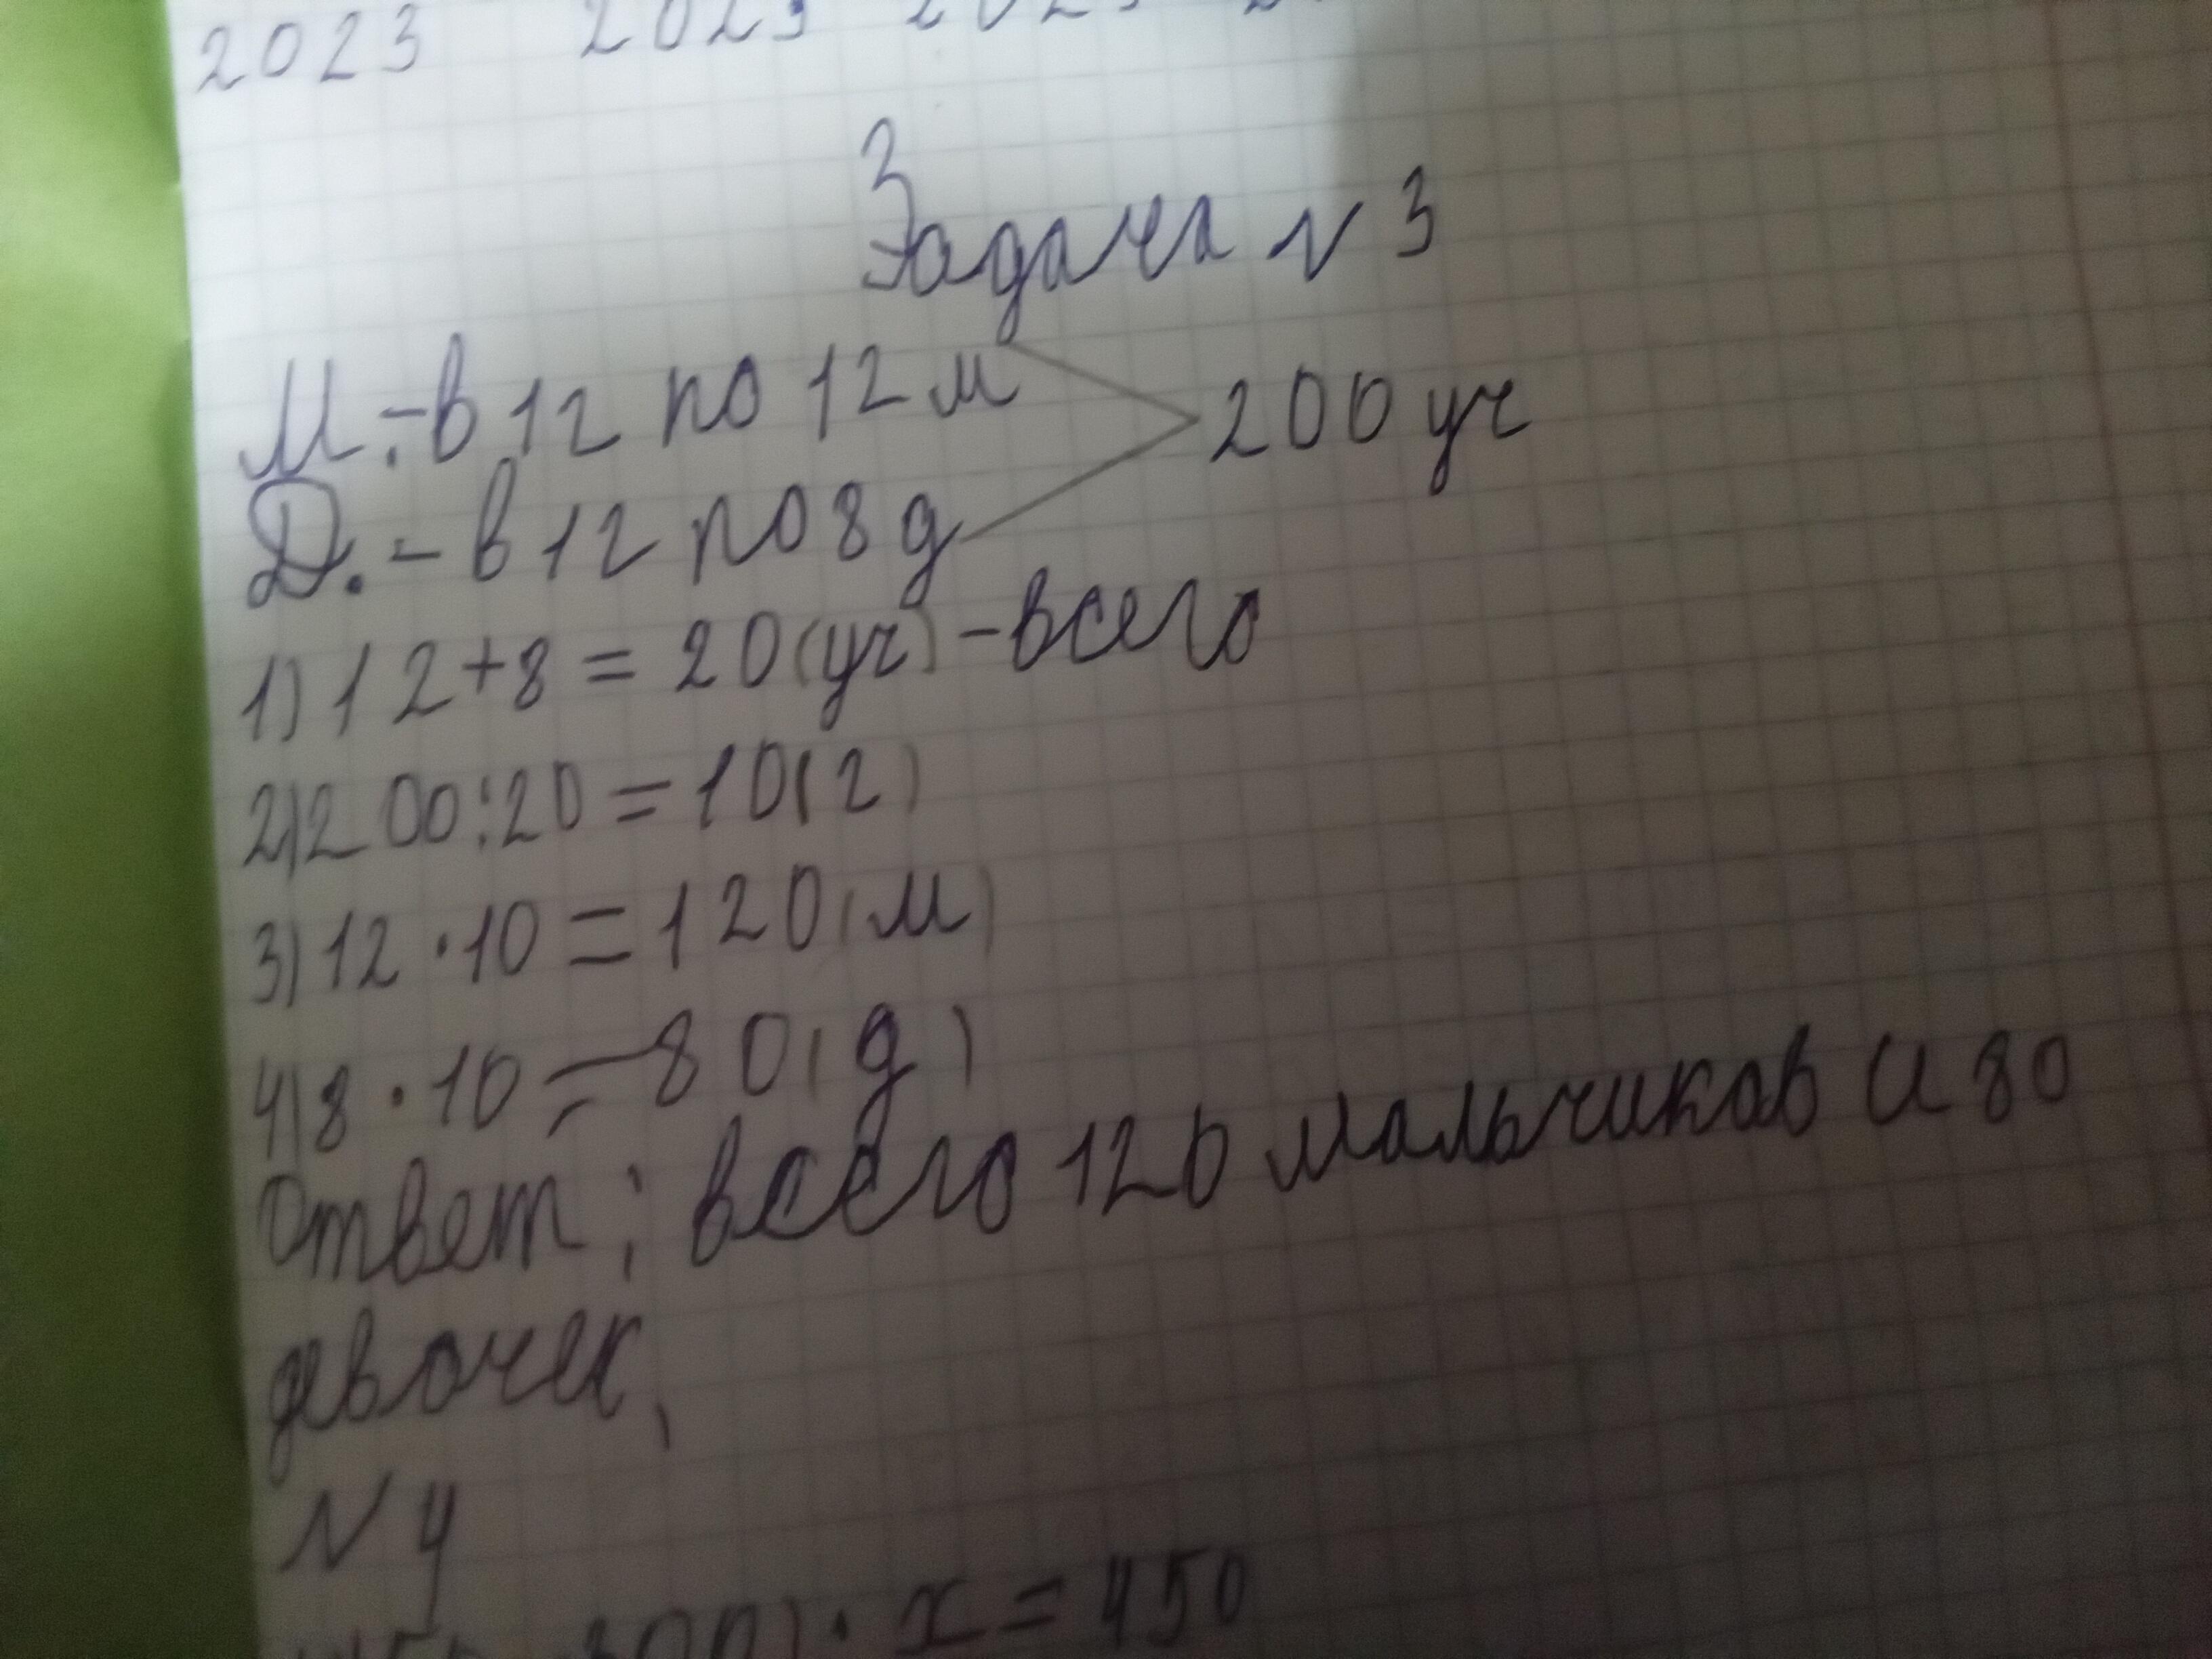 2023 2023 202
Задача N 3
М. - в 1г по 12 м
200 уч
Д. - в 1г по 8 д
1) 12+8=20(уч) - всего
2) 200:20=10(г)
3) 12·10=120(м)
4) 8·10=80(д)
Ответ: всего 120 мальчиков и 80
девочек.
N 4
00)·x=450